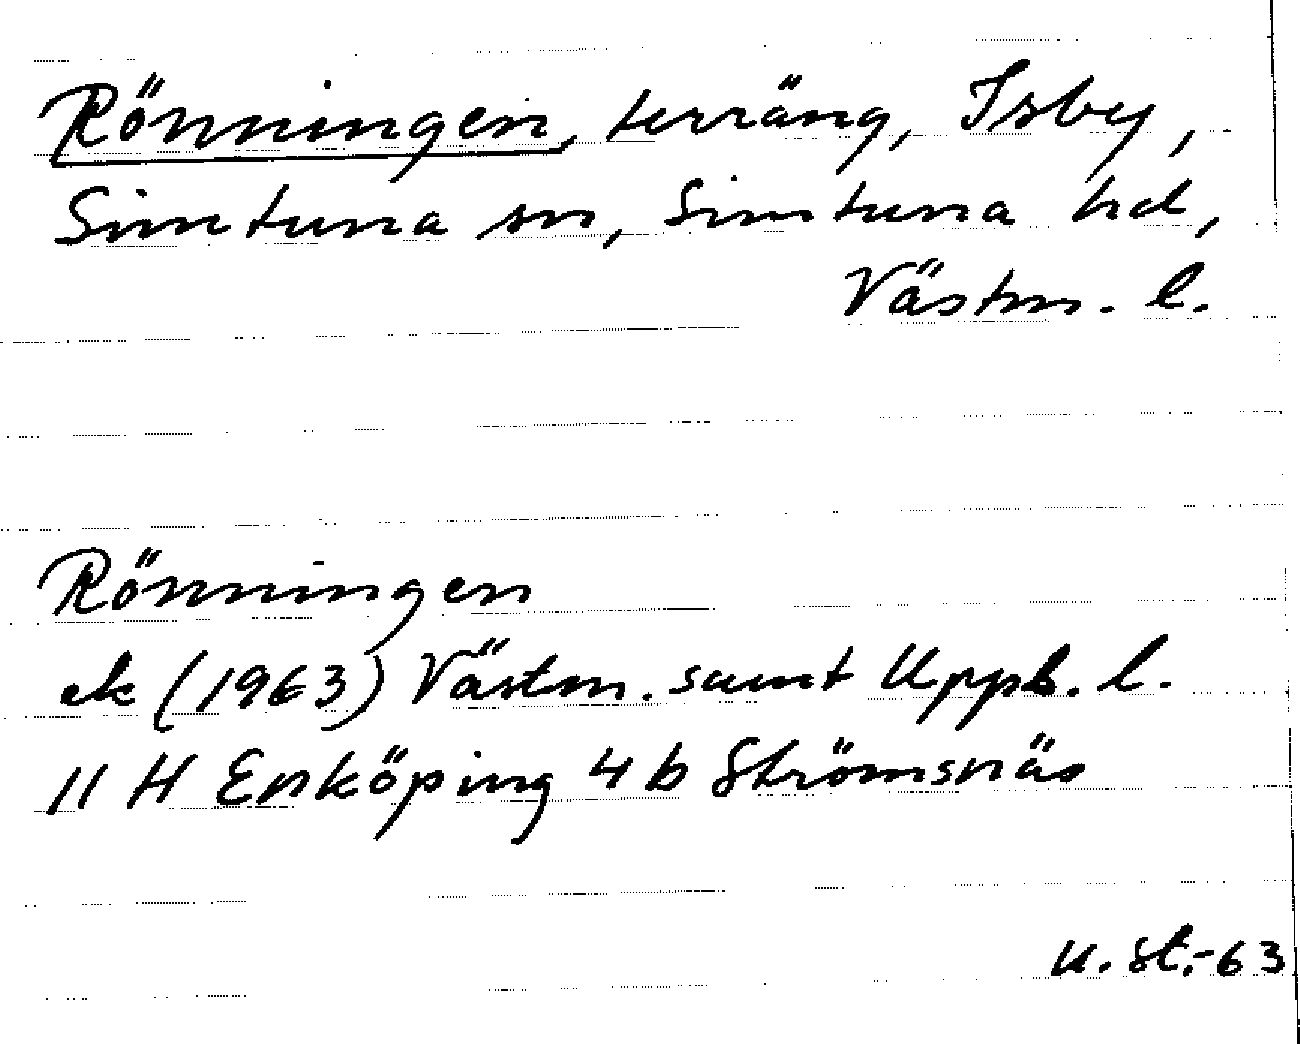 Rönningen, terräng, Isby,
Simtuna sn, Simtuna hd,
Västm. l.
Rönningen
ek (1963) Västm. samt Uppb. l.
11 H Enköping 4 b Strömsnäs
U. St. -63